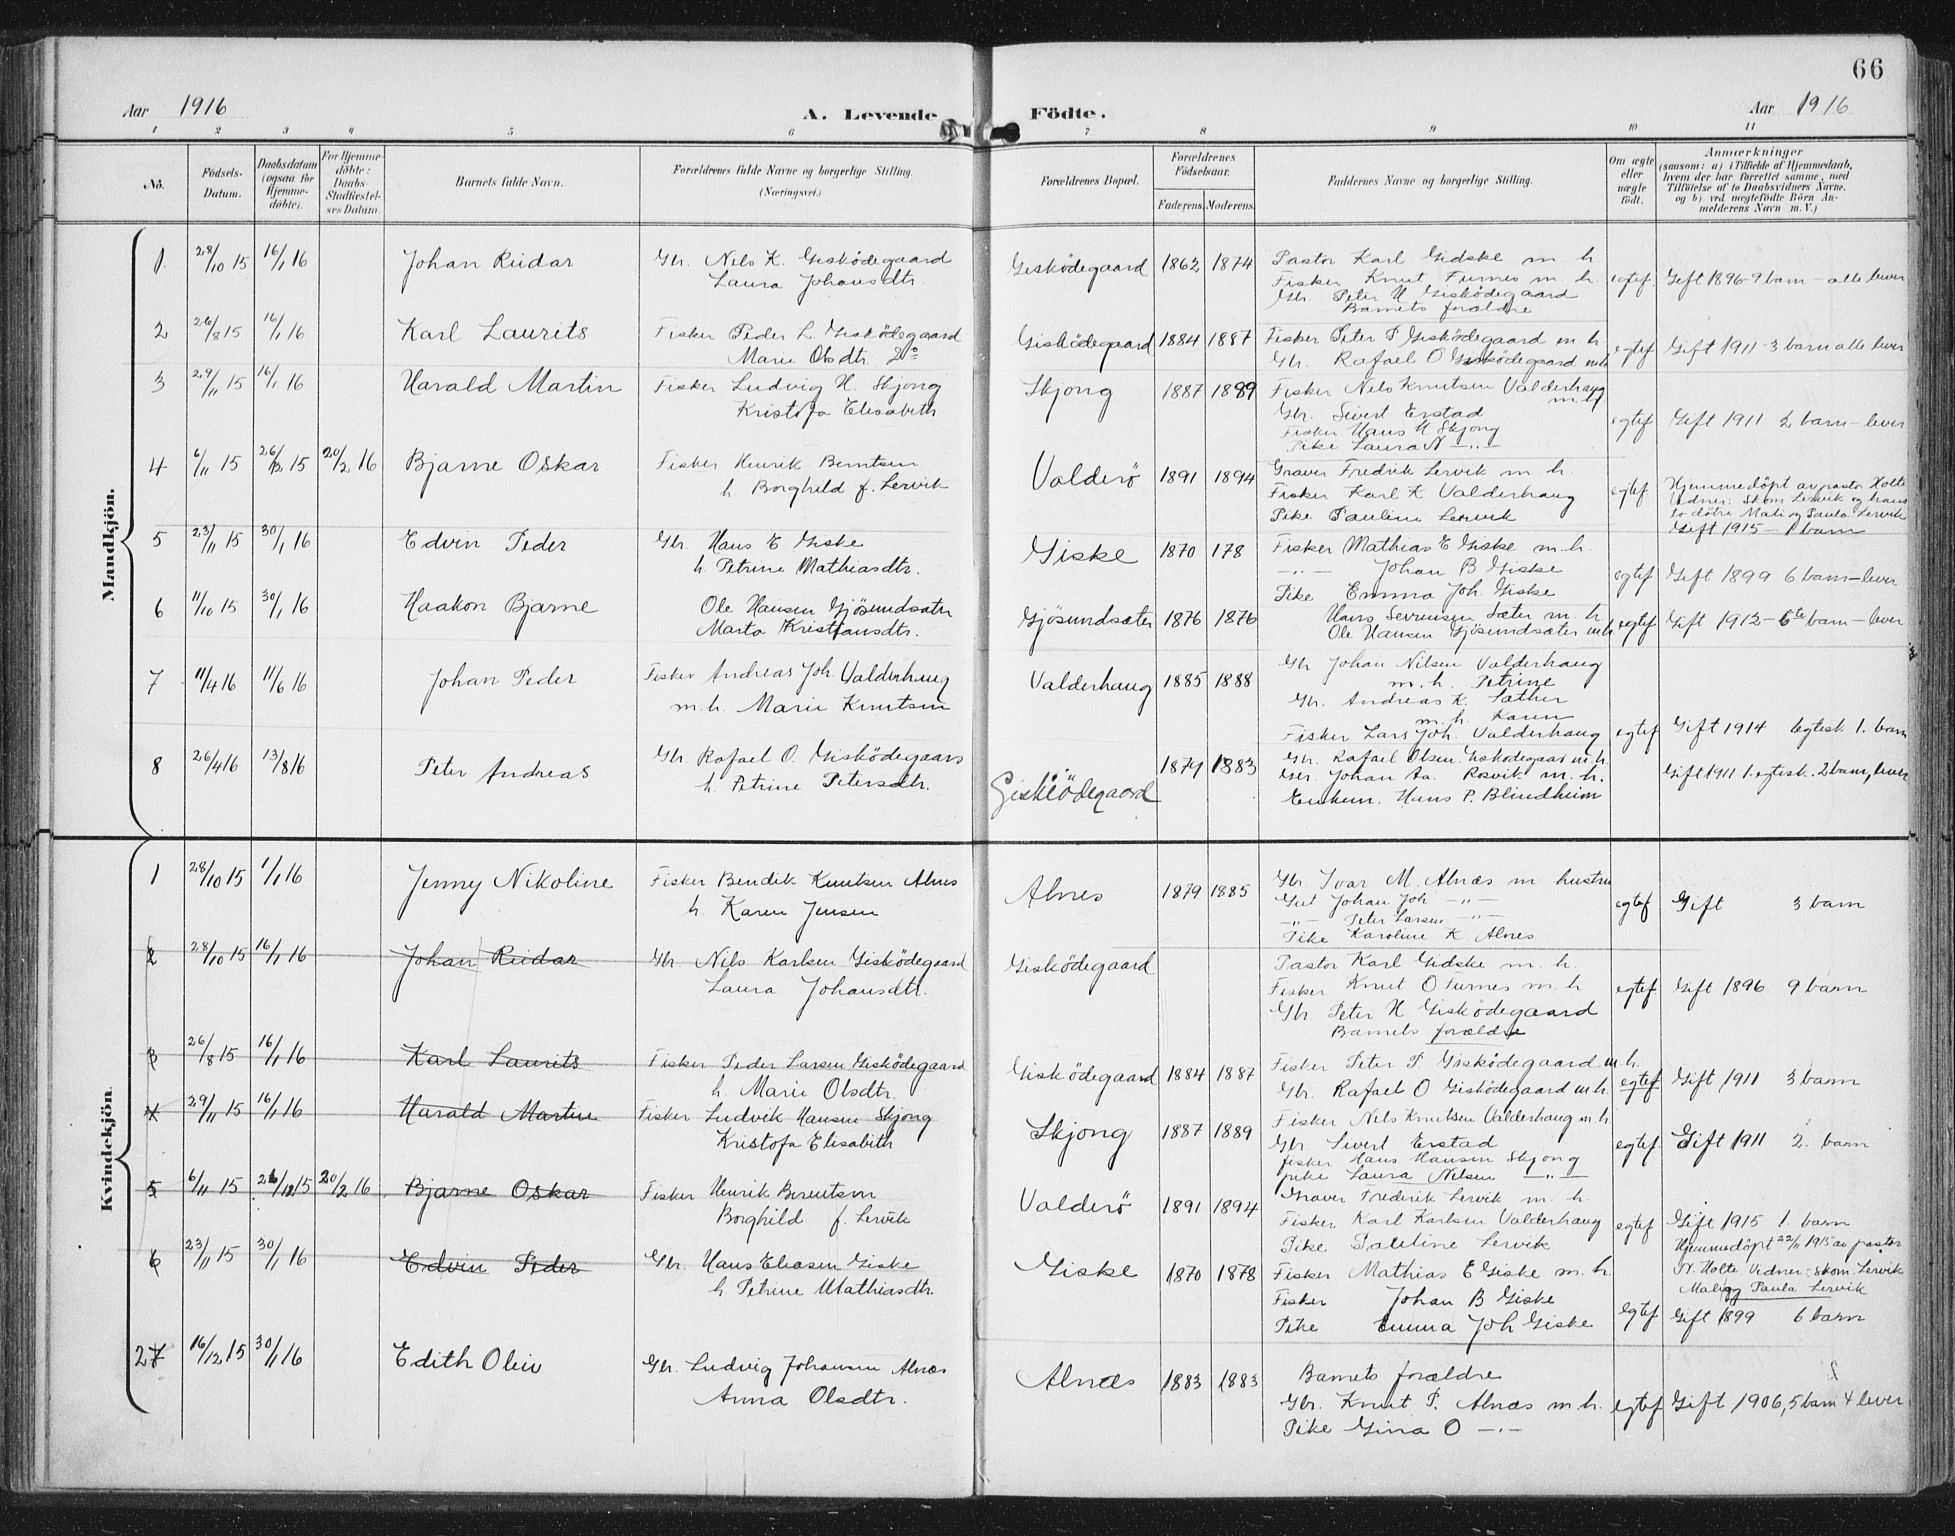 66
Aar 1916 A. Levende Födte. Aar 1916
1 2 3 4 5 6 7 8 9 10 11
No.
Födsels-Datum.
Daabsdatum (ogsaa for Hjemmedöbte).
For Hjemmedöbte: Daabs-Stadfæstelses Datum.
Barnets fulde Navn.
Forældrenes fulde Navne og borgerlige Stilling. (Næringsvei.)
Forældrenes Bopæl.
Forældrenes Födselsaar.
Faderens. Moderens.
Faddernes Navne og borgerlige Stilling.
Om ægte eller uægte födt.
Anmærkninger
(saasom: a) i Tilfælde af Hjemmedaab,
hvem der har forrettet samme, med
Tilföielse af to Daabsvidners Navne,
og b) ved uægtefödte Börn An-
melderens Navn m. V.)
Mandkjön.
1 28/10 15 16/1 16 Johan Reidar Gbr. Nils K. Gisködegaard
Laura Johansdtr.
Gisködegaard 1862 1874 Pastor Karl Gidske m. h.
Fisker Knut Furnes m. h.
Gbr. Peter N Gisködegaard
Barnets forældre
egtef. Gift 1896 - 9 barn - alle lever
2 26/8 15 16/1 16 Karl Laurits Fisker Peder L. Gisködegaard
Marie Olsdtr. Do
Gisködegaard 1884 1887 Fisker Peter P Gisködegaard m. h.
Gbr. Rafael O Gisködegaard m h
egtef Gift 1911 - 3 barn alle lever
3 29/11 15 16/1 16 Harald Martin Fisker Ludvig H. Skjong
Kristofa Elisabeth
Skjong 1887 1889 Fisker Nils Knutsen Valderhaug
m. h
Gbr. Sivert Erstad
Fisker Hans H Skjong
Pike Laura N -"-
egtef Gift 1911 2 barn - lever
4 6/11 15 26/12 15 20/2 16 Bjarne Oskar Fisker Henrik Berntsen
h. Borghild f. Lervik
Valderö 1891 1894 Graver Fredrik Lervik m. h.
Fisker Karl K Valderhaug
Pike Pauline Lervik
egtef. Hjemmedöpt av pastor Holte
Vidner: Skom Lervik og hans
to dötre Mali og Paula Lervik
Gift 1915 - 1 barn
5 23/11 15 30/1 16 Edvin Peder Gbr. Hans E Giske
h. Petrine Mathiasdtr.
Giske 1870 178 Fisker Mathias E Giske m. h.
-"- Johan B Giske
Pike Emma Joh. Giske
egtef Gift 1899 6 barn - lever
6 11/10 15 30/1 16 Haakon Bjarne Ole Hansen Gjösundsæter
Marta Kristiansdtr.
Gjösundsæter 1876 1876 Hans Sevrensen Sæter m. h
Ole Hansen Gjösundsæter m h
egtef Gift 1912 - 6te barn - lever
7 11/4 16 11/6 16 Johan Peder Fisker Andreas Joh. Valderhaug
m. h. Marie Knutsen
Valderhaug 1885 1888 Gbr. Johan Nilsen Valderhaug
m. h. Petrine
Gbr. Andreas K. Sather
m. h. Karen
Fisker Lars Joh. Valderhaug
egtef Gift 1914 1 egtesk. 1. barn
8 26/4 16 13/8 16 Peter Andreas Gbr. Rafael O. Gisködegaard
h. Petrine Petersdtr.
Giskiödegaard 1879 1883 Gbr. Rafael Olsen Gisködegaard m. h.
Gbr. Johan Aa. Rosvik m. h.
Enkem. Hans P. Blindheim
Gift 1911 1. egtesk. 2 barn, lever
Kvindekjön
1 28/10 15 1/1 16 Jenny Nikoline Fisker Bendik Knutsen Alnes
h. Karen Jensen
Alnes 1879 1885 Gbr Ivar M. Alnæs m hustru
Gut Johan Joh -"-
-"- Peter Larsen -"-
Pike Karoline K Alnes
egtef Gift 3 barn
2 28/10 15 16/1 16 Johan Reidar Gbr. Nils Karlsen Gisködegaard
Laura Johansdtr.
Gisködegaard Pastor Karl Gidske m. h.
Fisker Knut O Furnes m. h
Gbr Peter N Gisködegaard
Barnets forældre
egtef Gift 1896 9 barn
3 26/8 15 16/1 16 Karl Laurits Fisker Peder Larsen Gisködegaard
h. Marie Olsdtr.
Gisködegaard 1884 1887 Fisker Peter P. Gisködegaard m. h.
Gbr. Rafael O Gisködegaard m h.
egtef. Gift 1911 3 barn
4 29/11 15 16/1 16 Harald Martin Fisker Ludvik Hansen Skjong
Kristofa Elisabeth
Skjong 1887 1889 Fisker Nils Knutsen Valderhaug m. h
Gbr Sivert Erstad
fisker Hans Hansen Skjong
pike Laura Nilsen -"-
egtef. Gift 1911 2. barn
5 6/11 15 26/12 15 20/2 16 Bjarne Oskar Fisker Henrik Berentsen
Borghild f. Lervik
Valderö 1891 1894 Graver Frederik Lervik m. h.
Fisker Karl Karlsen Valderhaug
Pike Pauline Lervik
egtef Gift 1915 1 barn
Hjemmedöpt 22/11 1915 av pastor
N. Holte. Vidner: skom Lervik
Mali og Paula Lervik
6 23/11 15 30/1 16 Edvin Peder Gbr. Hans Eliasen Giske
h. Petrine Mathiasdtr.
Giske 1870 1878 Fisker Mathias E Giske m. h.
Fisker Johan B Giske
Pike Emma Joh Giske
Egtef Gift 1899 6 barn
27 16/12 15 30/1 16 Edith Oliv Gbr. Ludvig Johansen Alnæs
Anna Olsdtr.
Alnæs 1883 1883 Barnets forældre
Gbr. Knut P. Alnæs m. h.
Pike Gina O -"-
egtef Gift 1906, 5 barn 4 lever